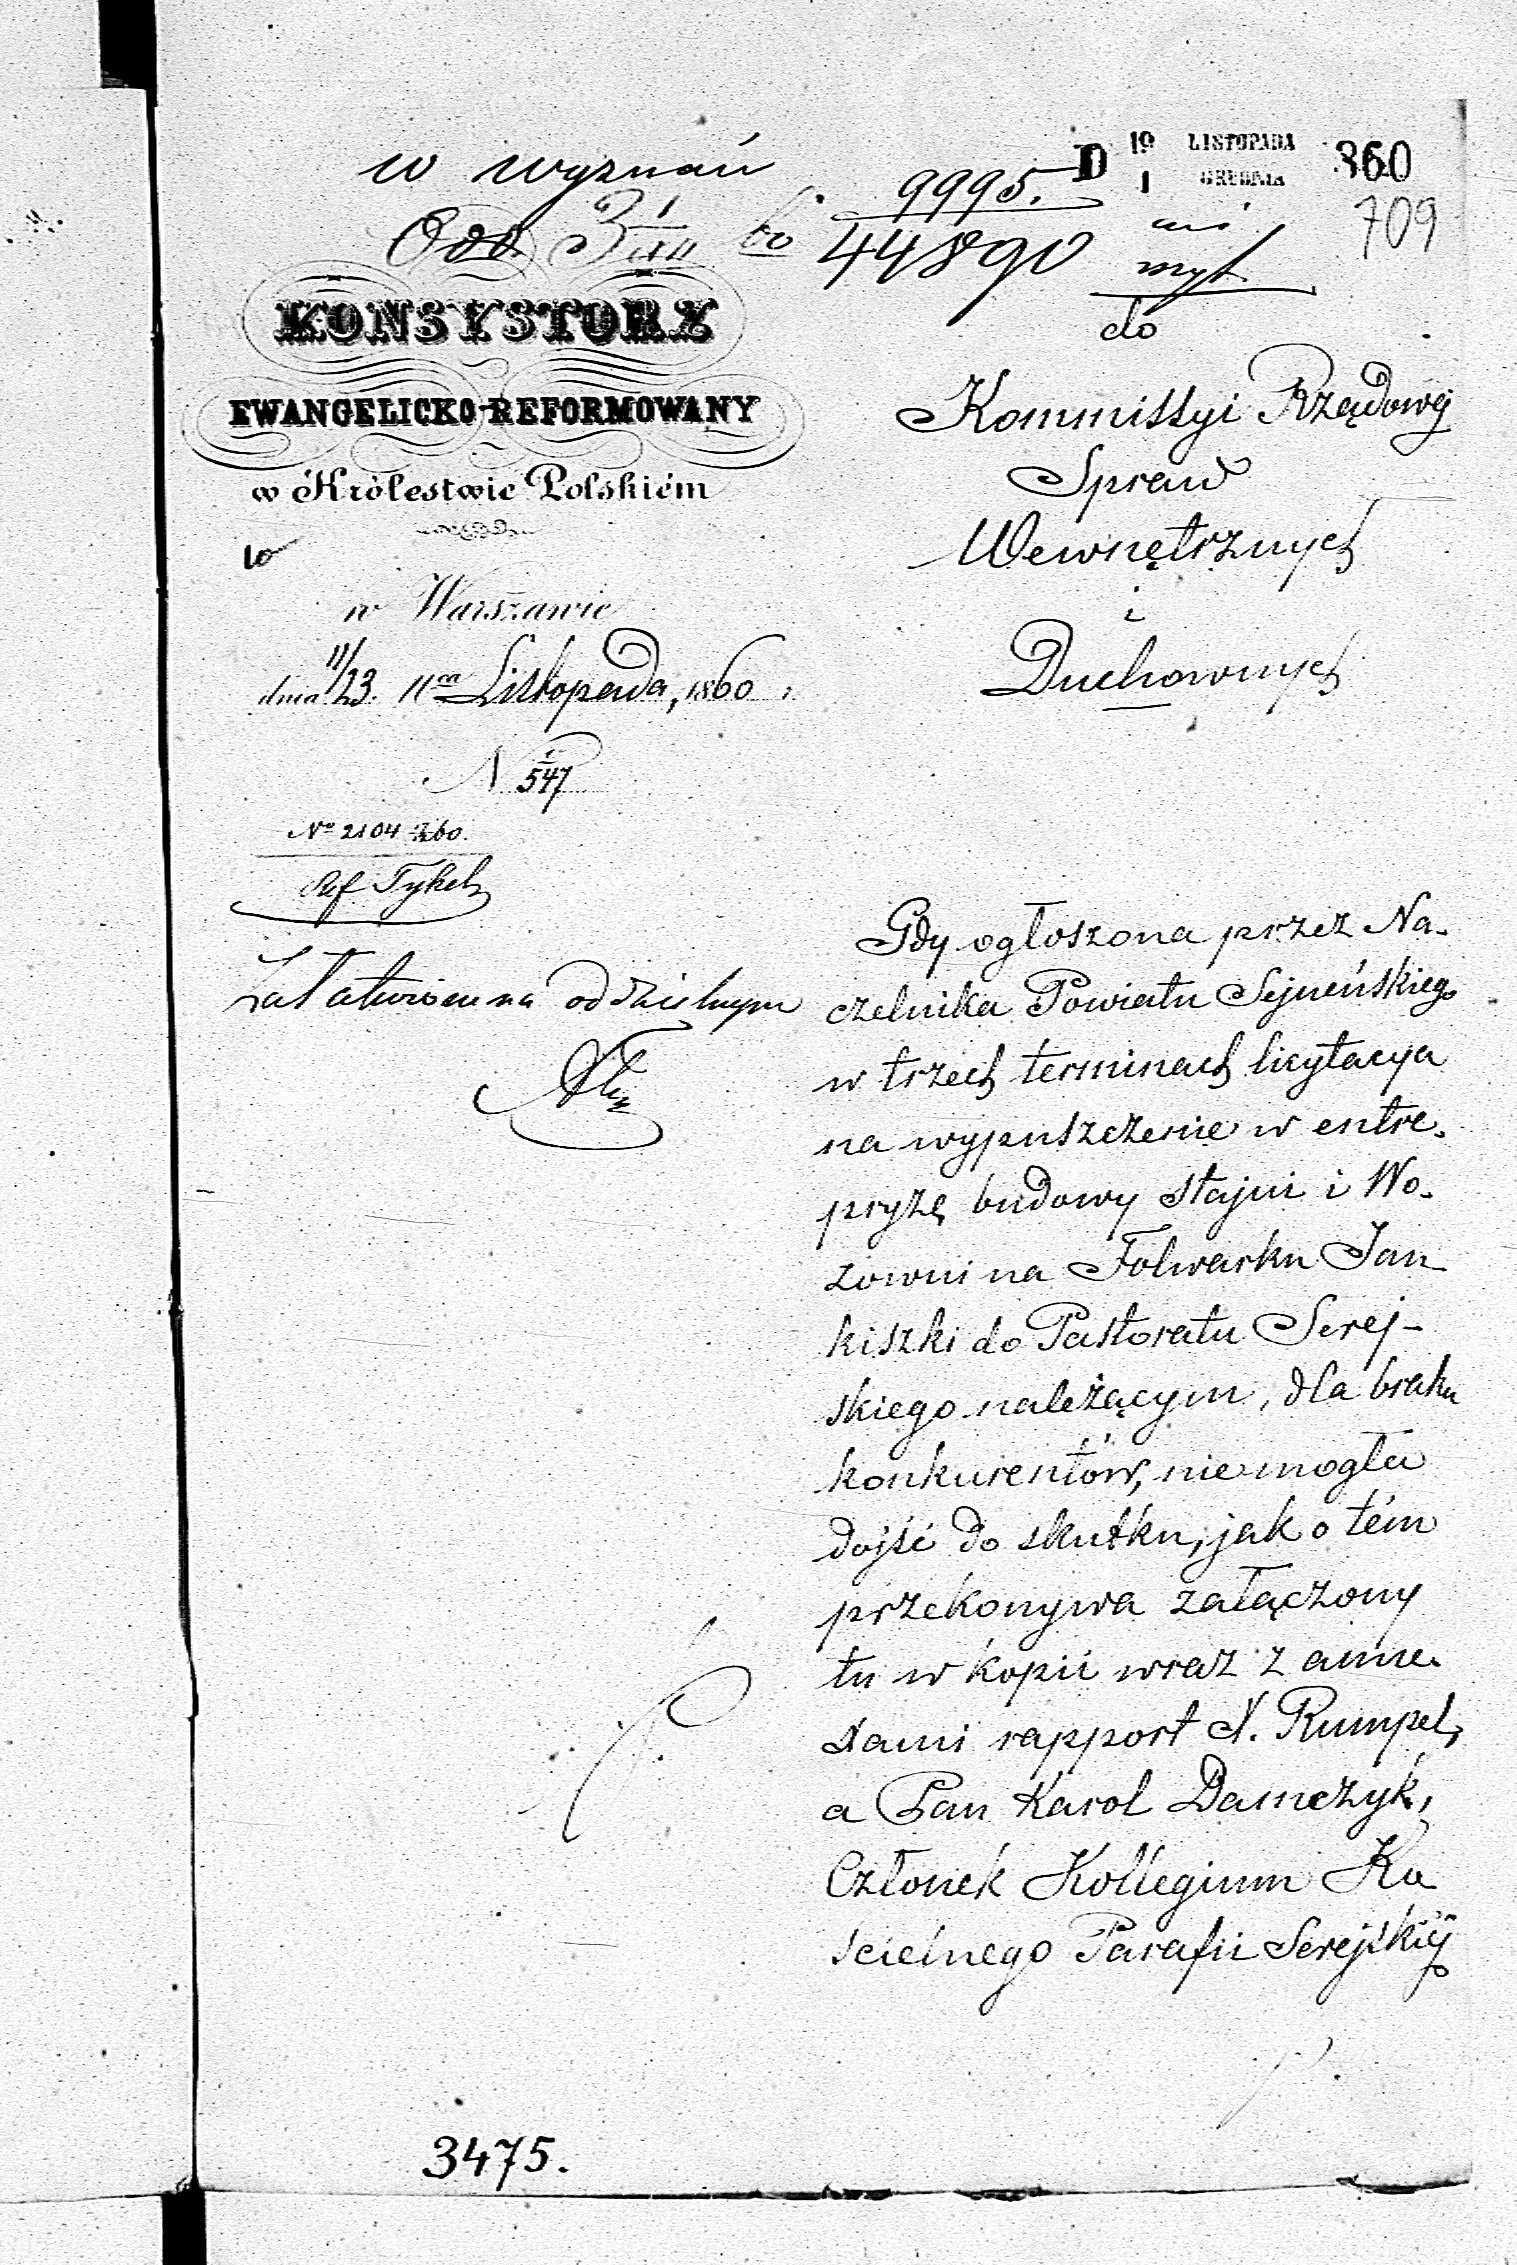 w wyznań
9995.
D 19 LISTOPADA 1 GRUDNIA 860
709
44890
do
KONSYSTORZ
EWANGELICKO-REFORMOWANY
w Królestwie Polskiém
w Warszawie
dnia 11/23. Listopada, 1860.
N 547
Kommissyi Rządowéj
Spraw
Wewnętrznych
i
Duchownych
No 2104
Ref Tykel
Załatwiono na oddzielnym
Gdy ogłoszona przez Na-
czelnika Powiatu Sejneńskiego
w trzech terminach licytacya
na wypuszczenie w entre-
pryzę budowy stajni i Wo-
zowni na Folwarku Jan
kiszki do Pastoratu Serej-
skiego należącym, dla braku
konkurentów, nie mogła
dojść do skutku, jak o tém
przekonywa załączony
tu w kopii wraz z anne-
xami rapport N. Rumpel,
a Pan Karol Damczyk,
Członek Kollegium Ko
ścielnego Parafii Serejskiéj
3475.